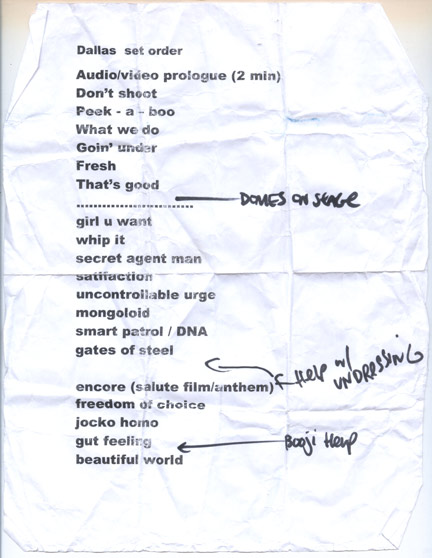 Dallas set order
Audio/video prologue (2 min)
Don't shoot
Peek - a - boo
What we do
Goin' under
Fresh
That's good
DOMES ON STAGE
..............................
girl u want
whip it
secret agent man
satifaction
uncontrollable urge
mongoloid
smart patrol / DNA
gates of steel
HELP w/
UNDRESSING
encore (salute film/anthem)
freedom of choice
jocko homo
gut feeling
Booji Help
beautiful world